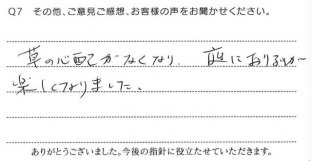 Q7 その他、ご意見ご感想、お客様の声をお聞かせください。
草の心配がなくなり 庭におりるのが
楽しくなりました。
ありがとうございました。今後の指針に役立たせていただきます。